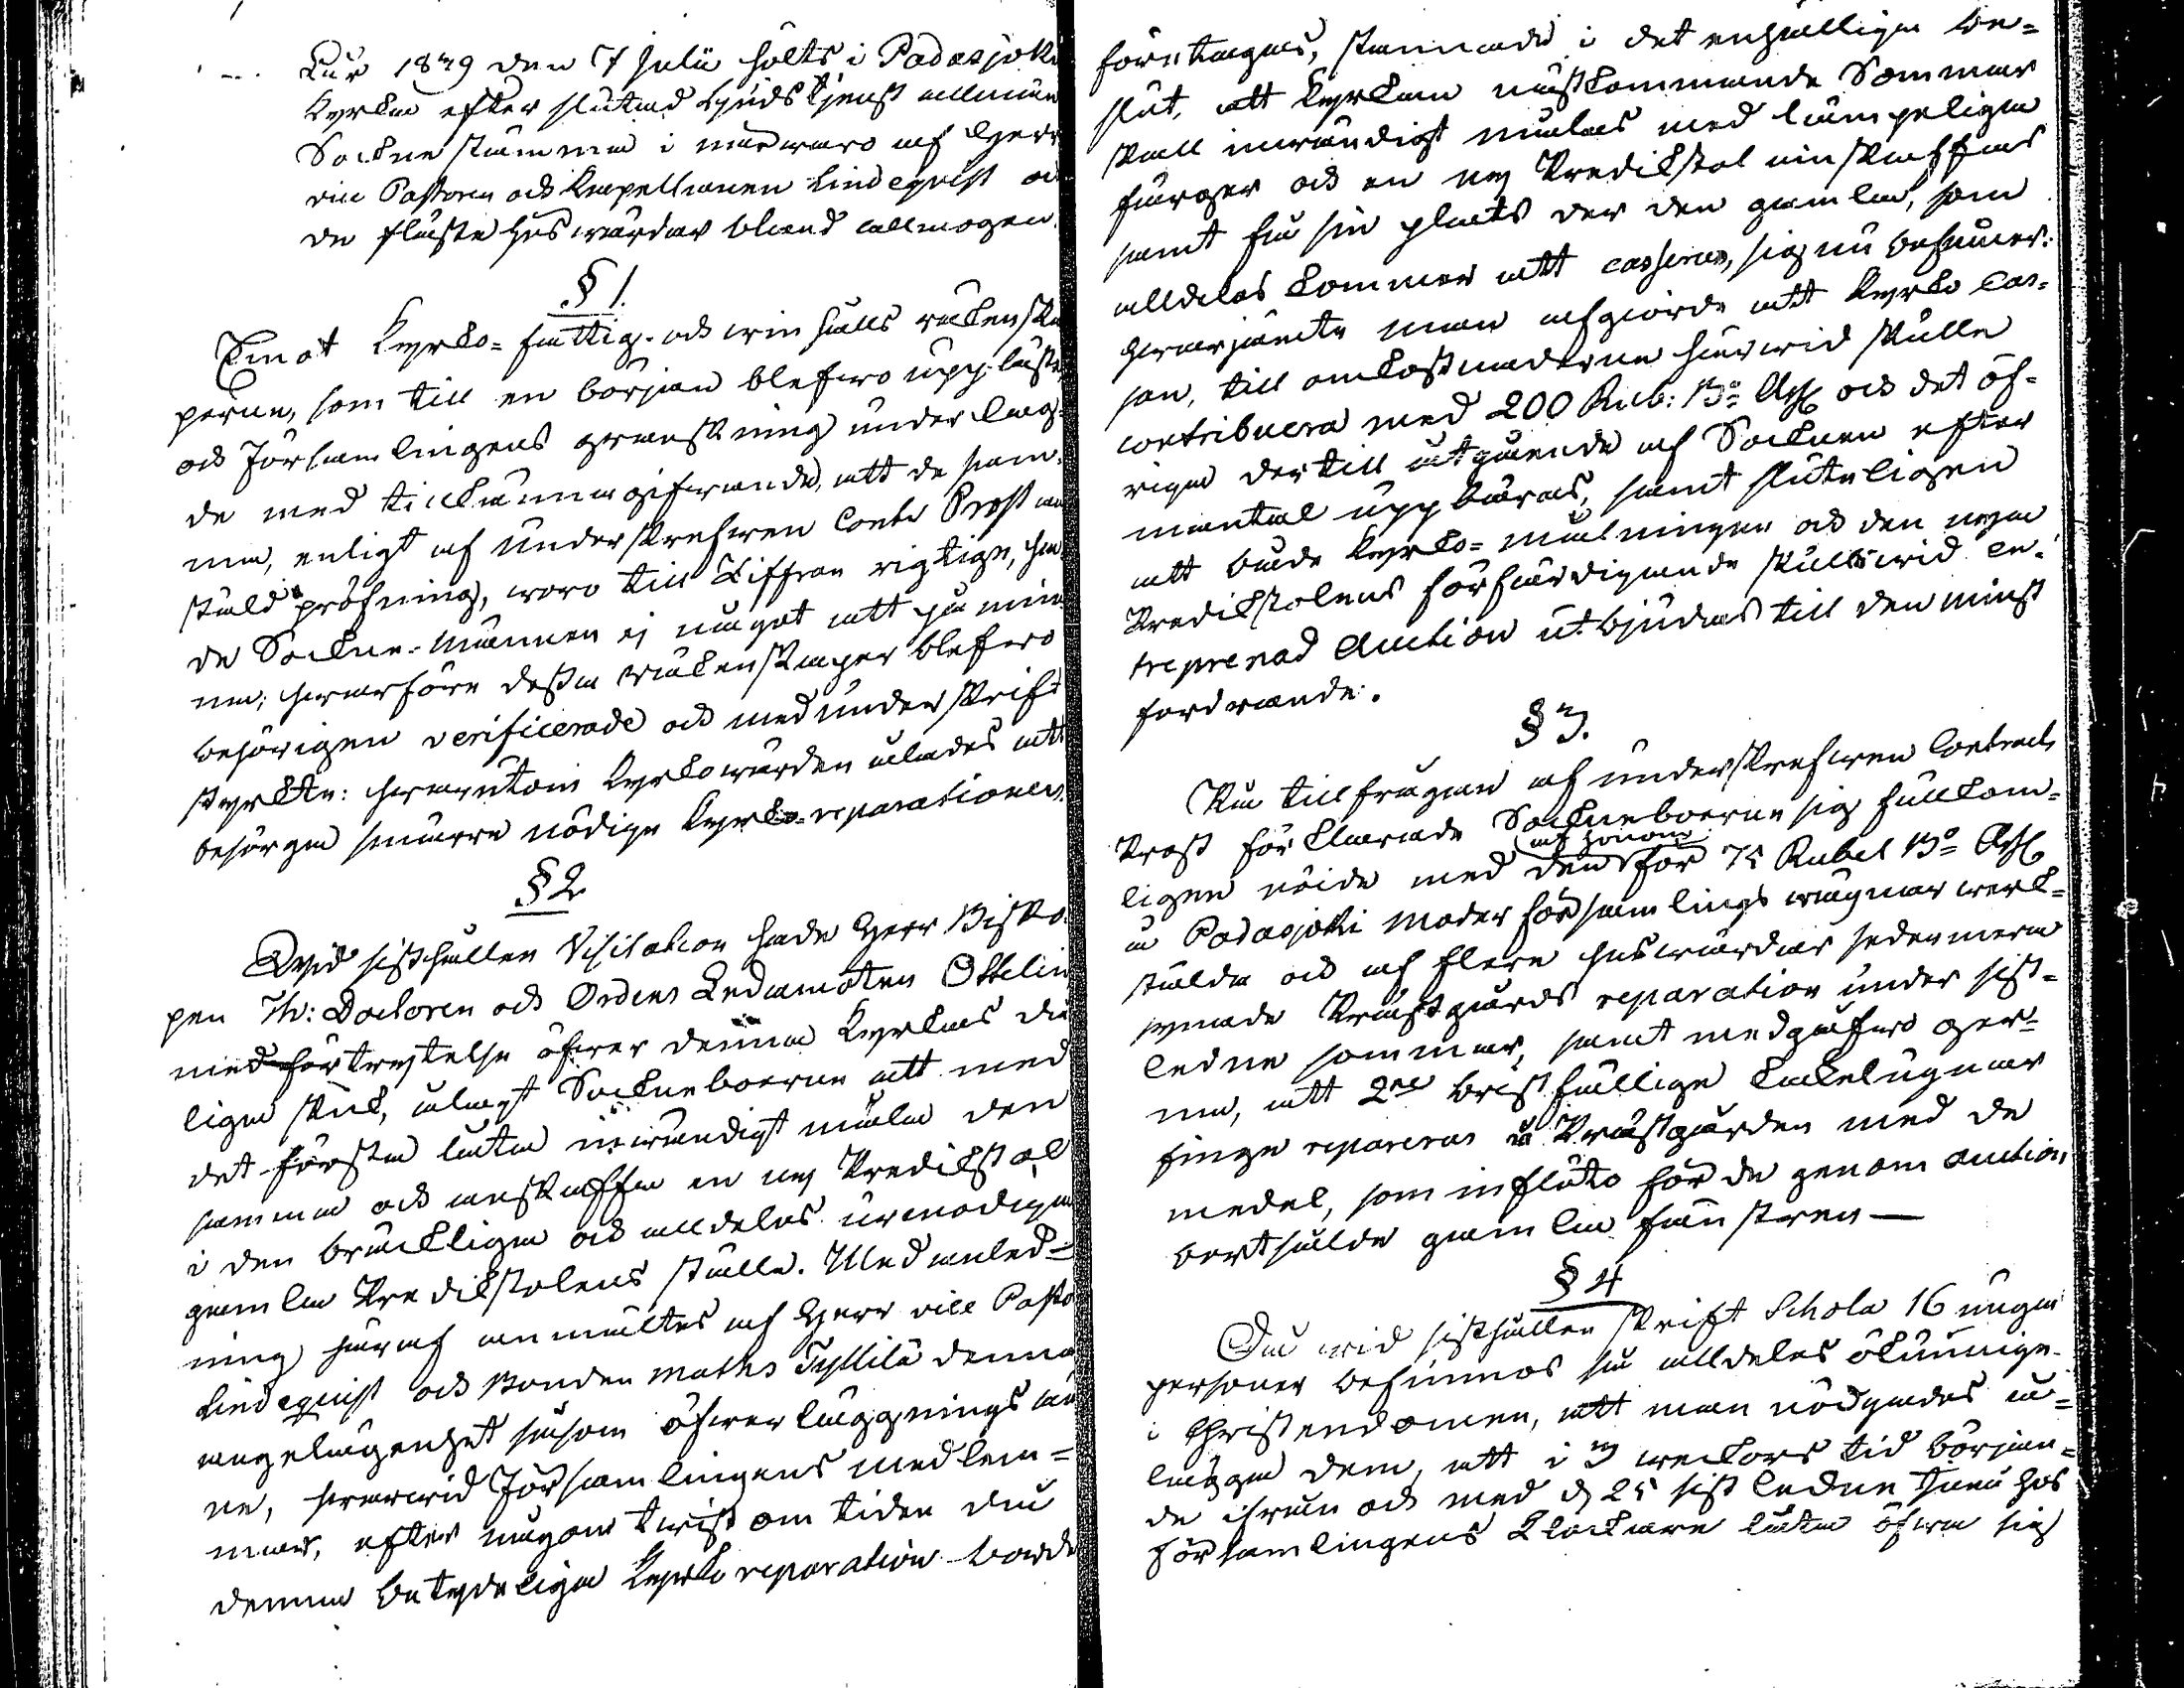 Åur 1839 den 7 Julii hölts i Padasjoki
Kyrka efter slutad Gudstjenst allmän
Sockne stämma i närwaro af Herr
vice Pastoren och Kapellanen Lindeqvist och
de flästa huswärdar bland allmogen.
§ 1.
Emot Kyrko- fattig- och winhälls räkenska
perne, som till en början blefwo uppläste
och Församlingens granskning underlag-
de med tillkännagifwande, att de sam-
ma, enligt af underskrefwen Contr. Prost an
stäld pröfning, woro till Siffran rigtige, ha-
de Sockne-männen ej något att påmin
na; hwarföre dessa räkenskaper blefwo
behörigen verificerade och med underskrift
styrkte: hwarutom Kyrkowärden ålades att
besörga smärre nödige Kyrko-reparationer.
§ 2
Wid sisthållen Visitation hade Herr Bisko-
pen Th: Doctoren och Ordens Ledamoten Ottelin
med förtrytelse öfwer denna Kyrkas då
liga skick, ålagt Sockneboerne att med
det första låta inwändigt måla den
samma och anskaffa en ny Predikstol
i den bräckliga och alldeles urmodiga
gamla Predikstolens ställe. Med anled-
ning häraf anmältes af Herr vice Pasto
Lindeqvist och Bonden Maths Tyllilä denna
angelägenhet såsom öfwerläggnings äm
ne, hwarwid Församlingens medlem-
mar, efter någon twist om tiden då
denna betydeliga Kyrko reparation borde
företagas, stannade i det enhälliga be-
slut, att Kyrkan nästkommande Sommar
skall inwändigt målas med lämpeliga
färger och en ny Predikstol anskaffas
samt få sin plats der den gamla, som
alldeles kommer att casseras, sig nu befinner.
hwarjämte man afgiorde att Kyrko Cas-
san, till omkostnaderne härwid skulle
contribuera med 200 Rub: B:o Ass och det öf-
riga dertill utgående af Socknen efter
mantal uppbäras, samt sluteligen
att både Kyrko-målningen och den nya
Predikstolens förfärdigande skulle wid en-
treprenad Auction utbjudas till den minst
fordrande.
§ 3.
På tillfrågan af underskrefwen Contracts
Prost förklarade Sockneboerne sig fullkom-
ligen nöide med den af honom för 75 Rubel B:o Ass
å Padasjoki moder församlings wägnar werk-
stälda och af flere huswärdar sedermera
synade Prästgårds reparation under sist-
ledne sommar, samt medgåfwo ger-
na, att 2ne bristfällige kakelugnar
finge repareras å Prästgården med de
medel, som influto för de genom auction
bortsålde gamla fänstren —
§ 4
Då wid sisthållen Skrift Schola 16 unga
personer befunnos så alldeles okunnige
i Christendomen, att man nödgades å-
lägga dem, att i 3 weckors tid början-
de ifrån och med d 25 sistledne Junii hos
församlingens Klockare låta öfwa sig